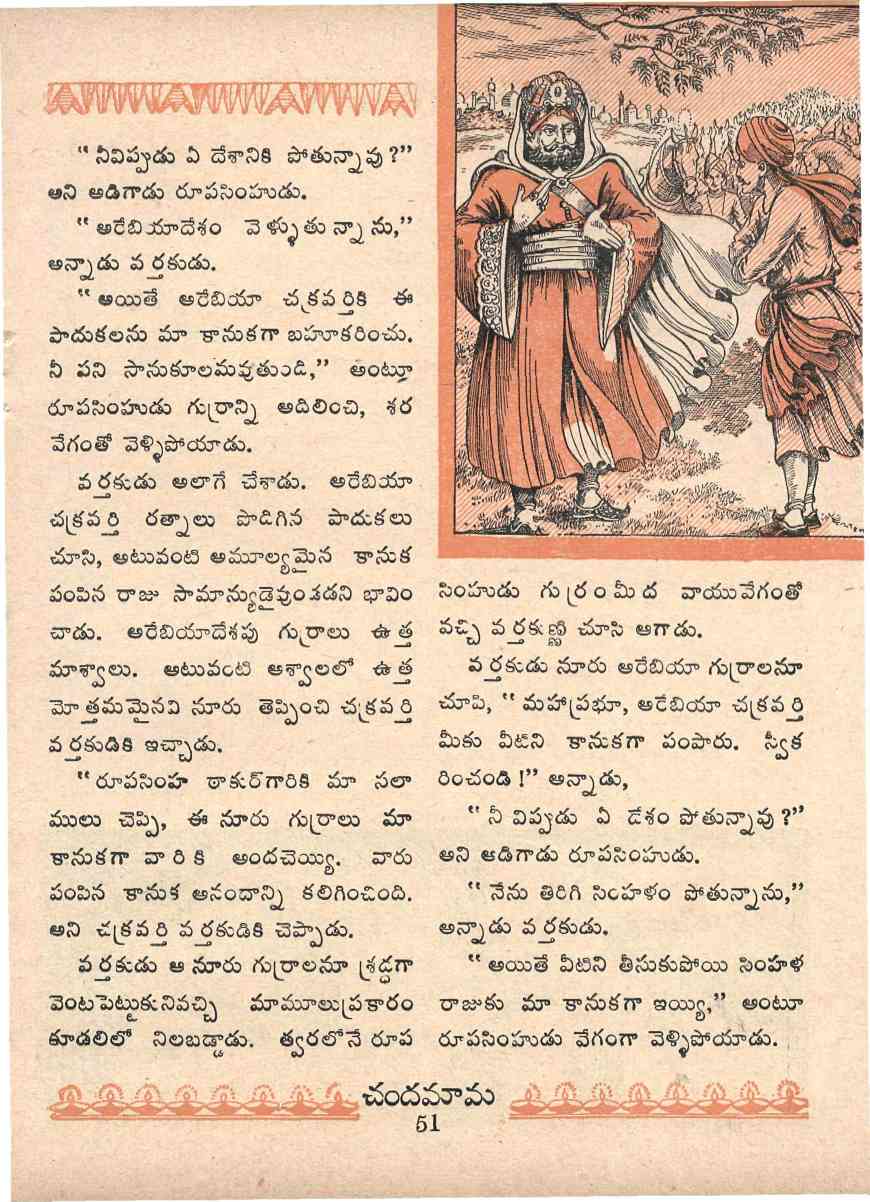 “ నీవిప్పుడు ఏ దేశానికి పోతున్నావు ?”
అని అడిగాడు రూపసింహుడు.
“ అరేబియాదేశం వెళ్ళుతున్నాను,”
అన్నాడు వర్తకుడు.
“ అయితే అరేబియా చక్రవర్తికి ఈ
పాదుకలను మా కానుకగా బహూకరించు.
నీ పని సానుకూలమవుతుంది,” అంటూ
రూపసింహుడు గుర్రాన్ని అదిలించి, శర
వేగంతో వెళ్ళిపోయాడు.
వర్తకుడు అలాగే చేశాడు. అరేబియా
చక్రవర్తి రత్నాలు పొడిగిన పాదుకలు
చూసి, అటువంటి అమూల్యమైన కానుక
పంపిన రాజు సామాన్యుడైవుండడని భావిం
చాడు. అరేబియాదేశపు గుర్రాలు ఉత్త
మాశ్వాలు. అటువంటి అశ్వాలలో ఉత్త
మోత్తమమైనవి నూరు తెప్పించి చక్రవర్తి
వర్తకుడికి ఇచ్చాడు.
“ రూపసింహ ఠాకుర్‌గారికి మా సలా
ములు చెప్పి, ఈ నూరు గుర్రాలు మా
కానుకగా వారికి అందచెయ్యి. వారు
పంపిన కానుక అనందాన్ని కలిగించింది.
అని చక్రవర్తి వర్తకుడికి చెప్పాడు.
వర్తకుడు ఆ నూరు గుర్రాలనూ శ్రద్ధగా
వెంటపెట్టుకునివచ్చి మామూలుప్రకారం
కూడలిలో నిలబడ్డాడు. త్వరలోనే రూప
సింహుడు గుర్రంమీద వాయువేగంతో
వచ్చి వర్తకుణ్ణి చూసి ఆగాడు.
వర్తకుడు నూరు అరేబియా గుర్రాలనూ
చూపి, “ మహాప్రభూ, అరేబియా చక్రవర్తి
మీకు వీటిని కానుకగా పంపారు. స్వీక
రించండి !” అన్నాడు,
“ నీ విప్పుడు ఏ దేశం పోతున్నావు ?”
అని అడిగాడు రూపసింహుడు.
“ నేను తిరిగి సింహళం పోతున్నాను,”
అన్నాడు వర్తకుడు.
“ అయితే వీటిని తీసుకుపోయి సింహళ
రాజుకు మా కానుకగా ఇయ్యి,” అంటూ
రూపసింహుడు వేగంగా వెళ్ళిపోయాడు.
చందమామ
51